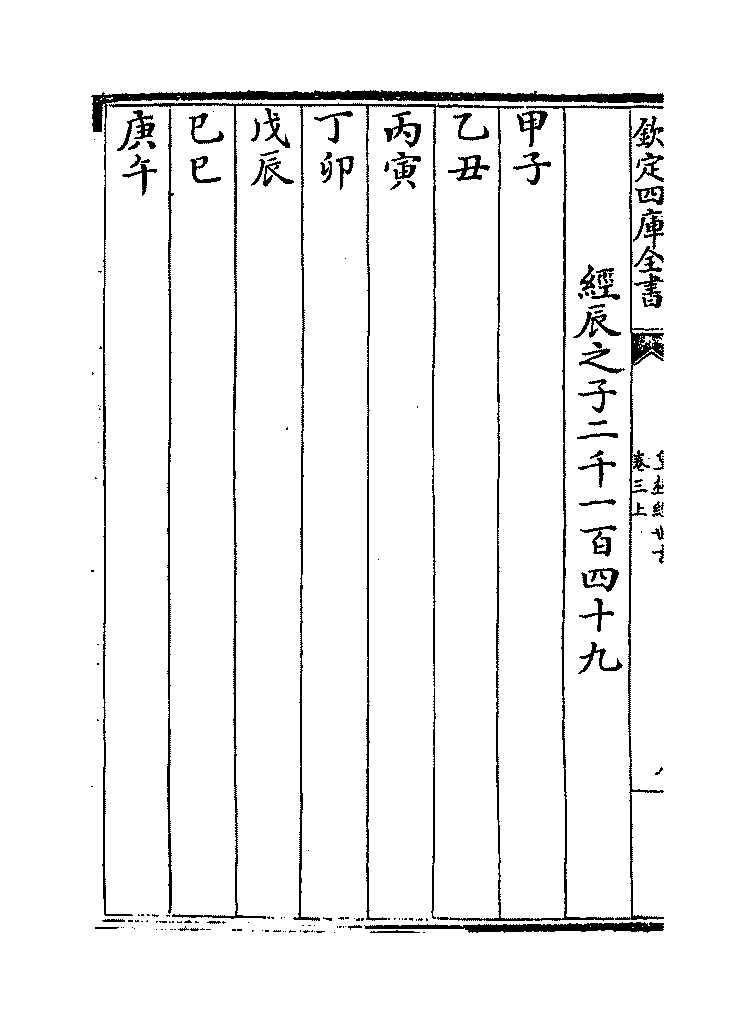 欽定四庫全書
卷三上
經辰之子二千一百四十九
甲子
乙丑
丙寅
丁卯
戊辰
己巳
庚午